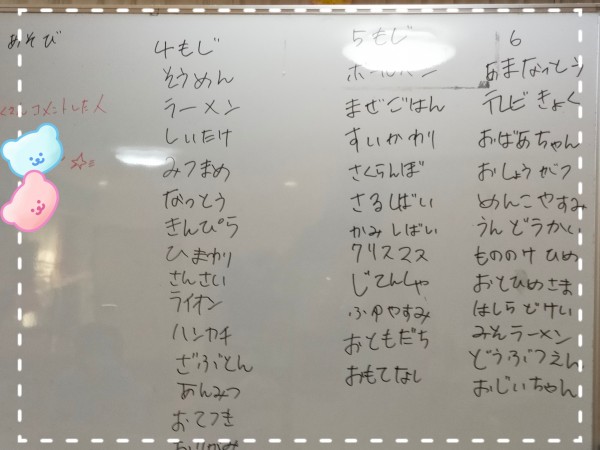 あそび
コメントした人
4もじ
そうめん
ラーメン
しいたけ
みつまめ
なっとう
きんぴら
ひまわり
さんさい
ライオン
ハンカチ
ざぶとん
あんみつ
おてつき
5もじ
ボールペン
まぜごはん
すいかわり
さくらんぼ
さるしばい
かみしばい
クリスマス
じてんしゃ
ふゆやすみ
おともだち
おもてなし
6
あまなっとう
テレビきょく
おばあちゃん
おしょうがつ
めんこやすみ
うんどうかい
もののけひめ
おとひめさま
はしらどけい
みそラーメン
どうぶつえん
おじいちゃん